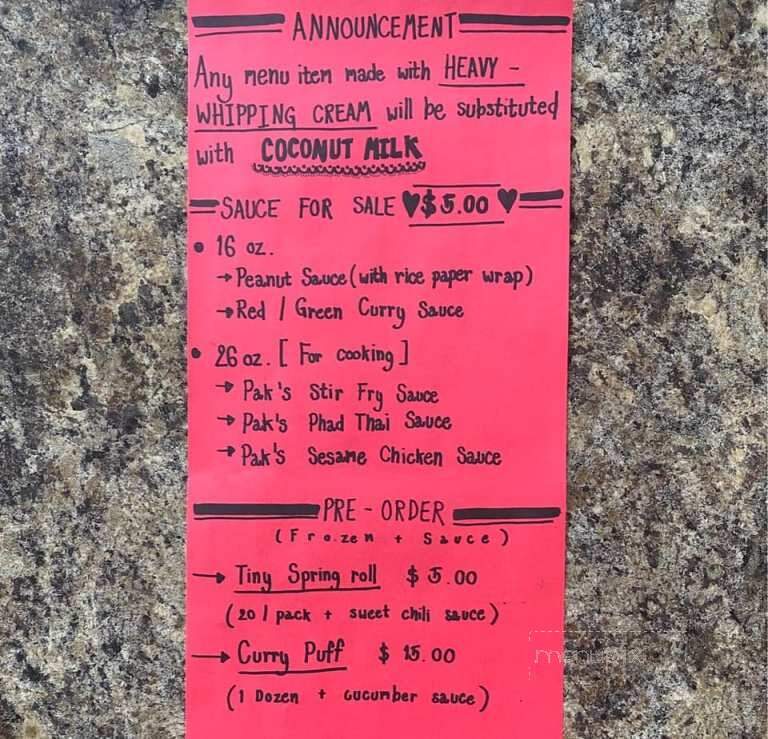 ANNOUNCEMENT
Any menu item made with HEAVY -
WHIPPING CREAM will be substituted
with COCONUT MILK
SAUCE FOR SALE ♥$5.00♥
• 16 oz.
→ Peanut Sauce (with rice paper wrap)
→ Red / Green Curry Sauce
• 26 oz. [ For cooking ]
→ Pak's Stir Fry Sauce
→ Pak's Phad Thai Sauce
→ Pak's Sesame Chicken Sauce
PRE - ORDER
(Frozen + Sauce)
→ Tiny Spring roll $5.00
(20 / pack + sweet chili sauce)
→ Curry Puff $15.00
(1 Dozen + cucumber sauce)